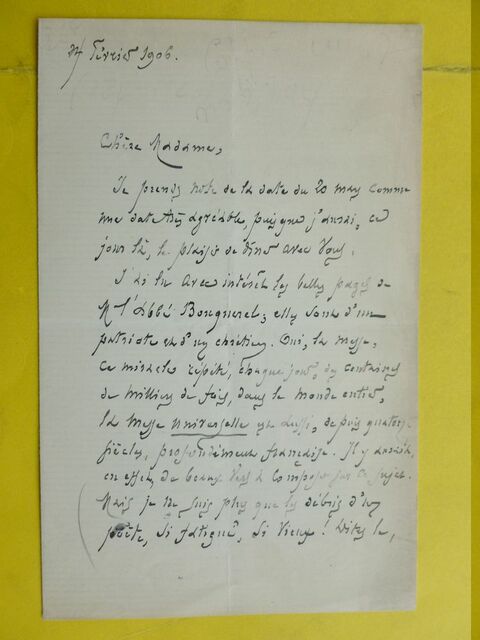 Février 1906.
Chère Madame,
Je prends note de la date du 20 mars comme
une date très agréable, puisque j'aurai, ce
jour là, le plaisir de dîner avec Vous.
J'ai lu avec intérêt les belles pages de
M l'Abbé ; elles sont d'un
patriote et d'un chrétien. Oui, la messe,
ce miracle répété, chaque jour, des centaines
de milliers de fois, dans le monde entier,
la messe universelle est aussi, depuis quatorze
siècles, profondément française. Il y aurait,
en effet, de beaux vers à composer sur ce sujet.
Mais je ne suis plus que les débris d'un
poète, si fatigué, si vieux ! Dites le,